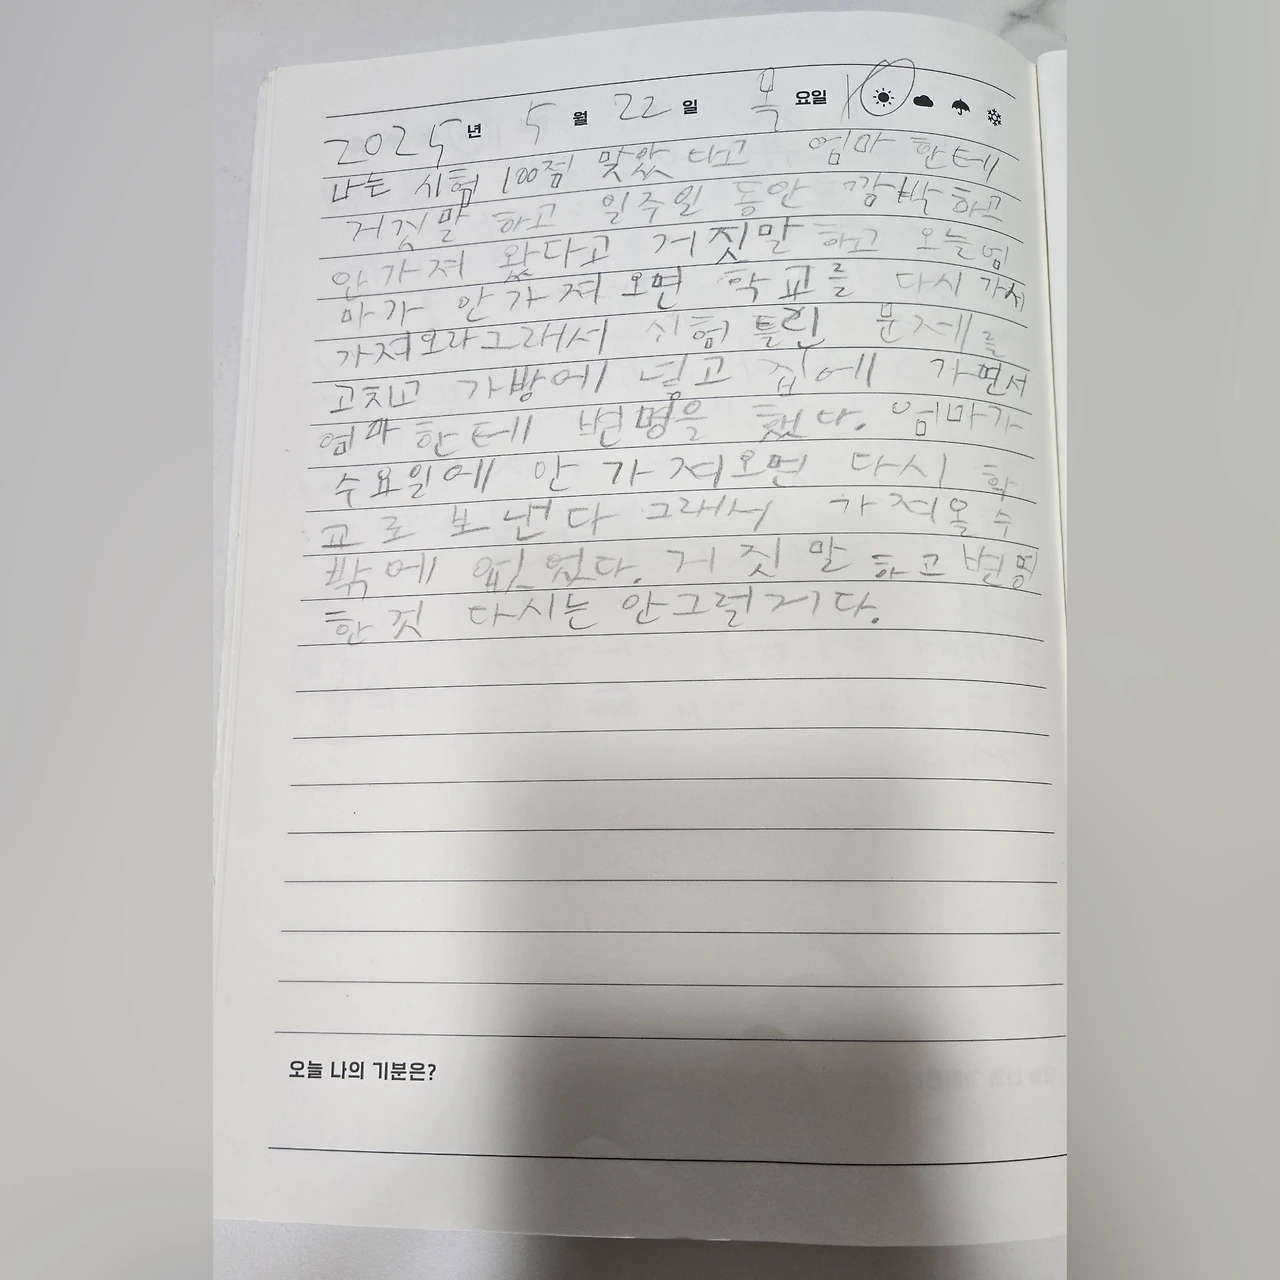 2025년 5월 22일 목요일
나는 시험 100점 맞았다고 엄마한테
거짓말 하고 일주일 동안 깜박하고
안가져 왔다고 거짓말하고 오늘엄
마가 안가져 오면 학교를 다시 가서
가져오라그래서 시험 틀린 문제를
고치고 가방에 넣고 집에 가면서
엄마 한테 변명을 했다. 엄마가
수요일에 안 가져오면 다시 학
교로 보낸다 그래서 가져올 수
밖에 없었다. 거짓말 하고 변명
한것 다시는 안그럴게다.
오늘 나의 기분은?